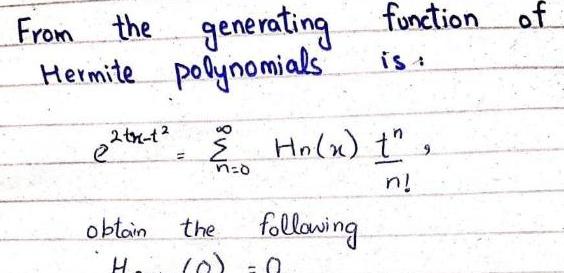 From the generating function of
Hermite polynomials is :
e^{2tx-t^2} = \sum_{n=0}^{\infty} H_n(x) \frac{t^n}{n!} ,
obtain the following
H (0) = 0